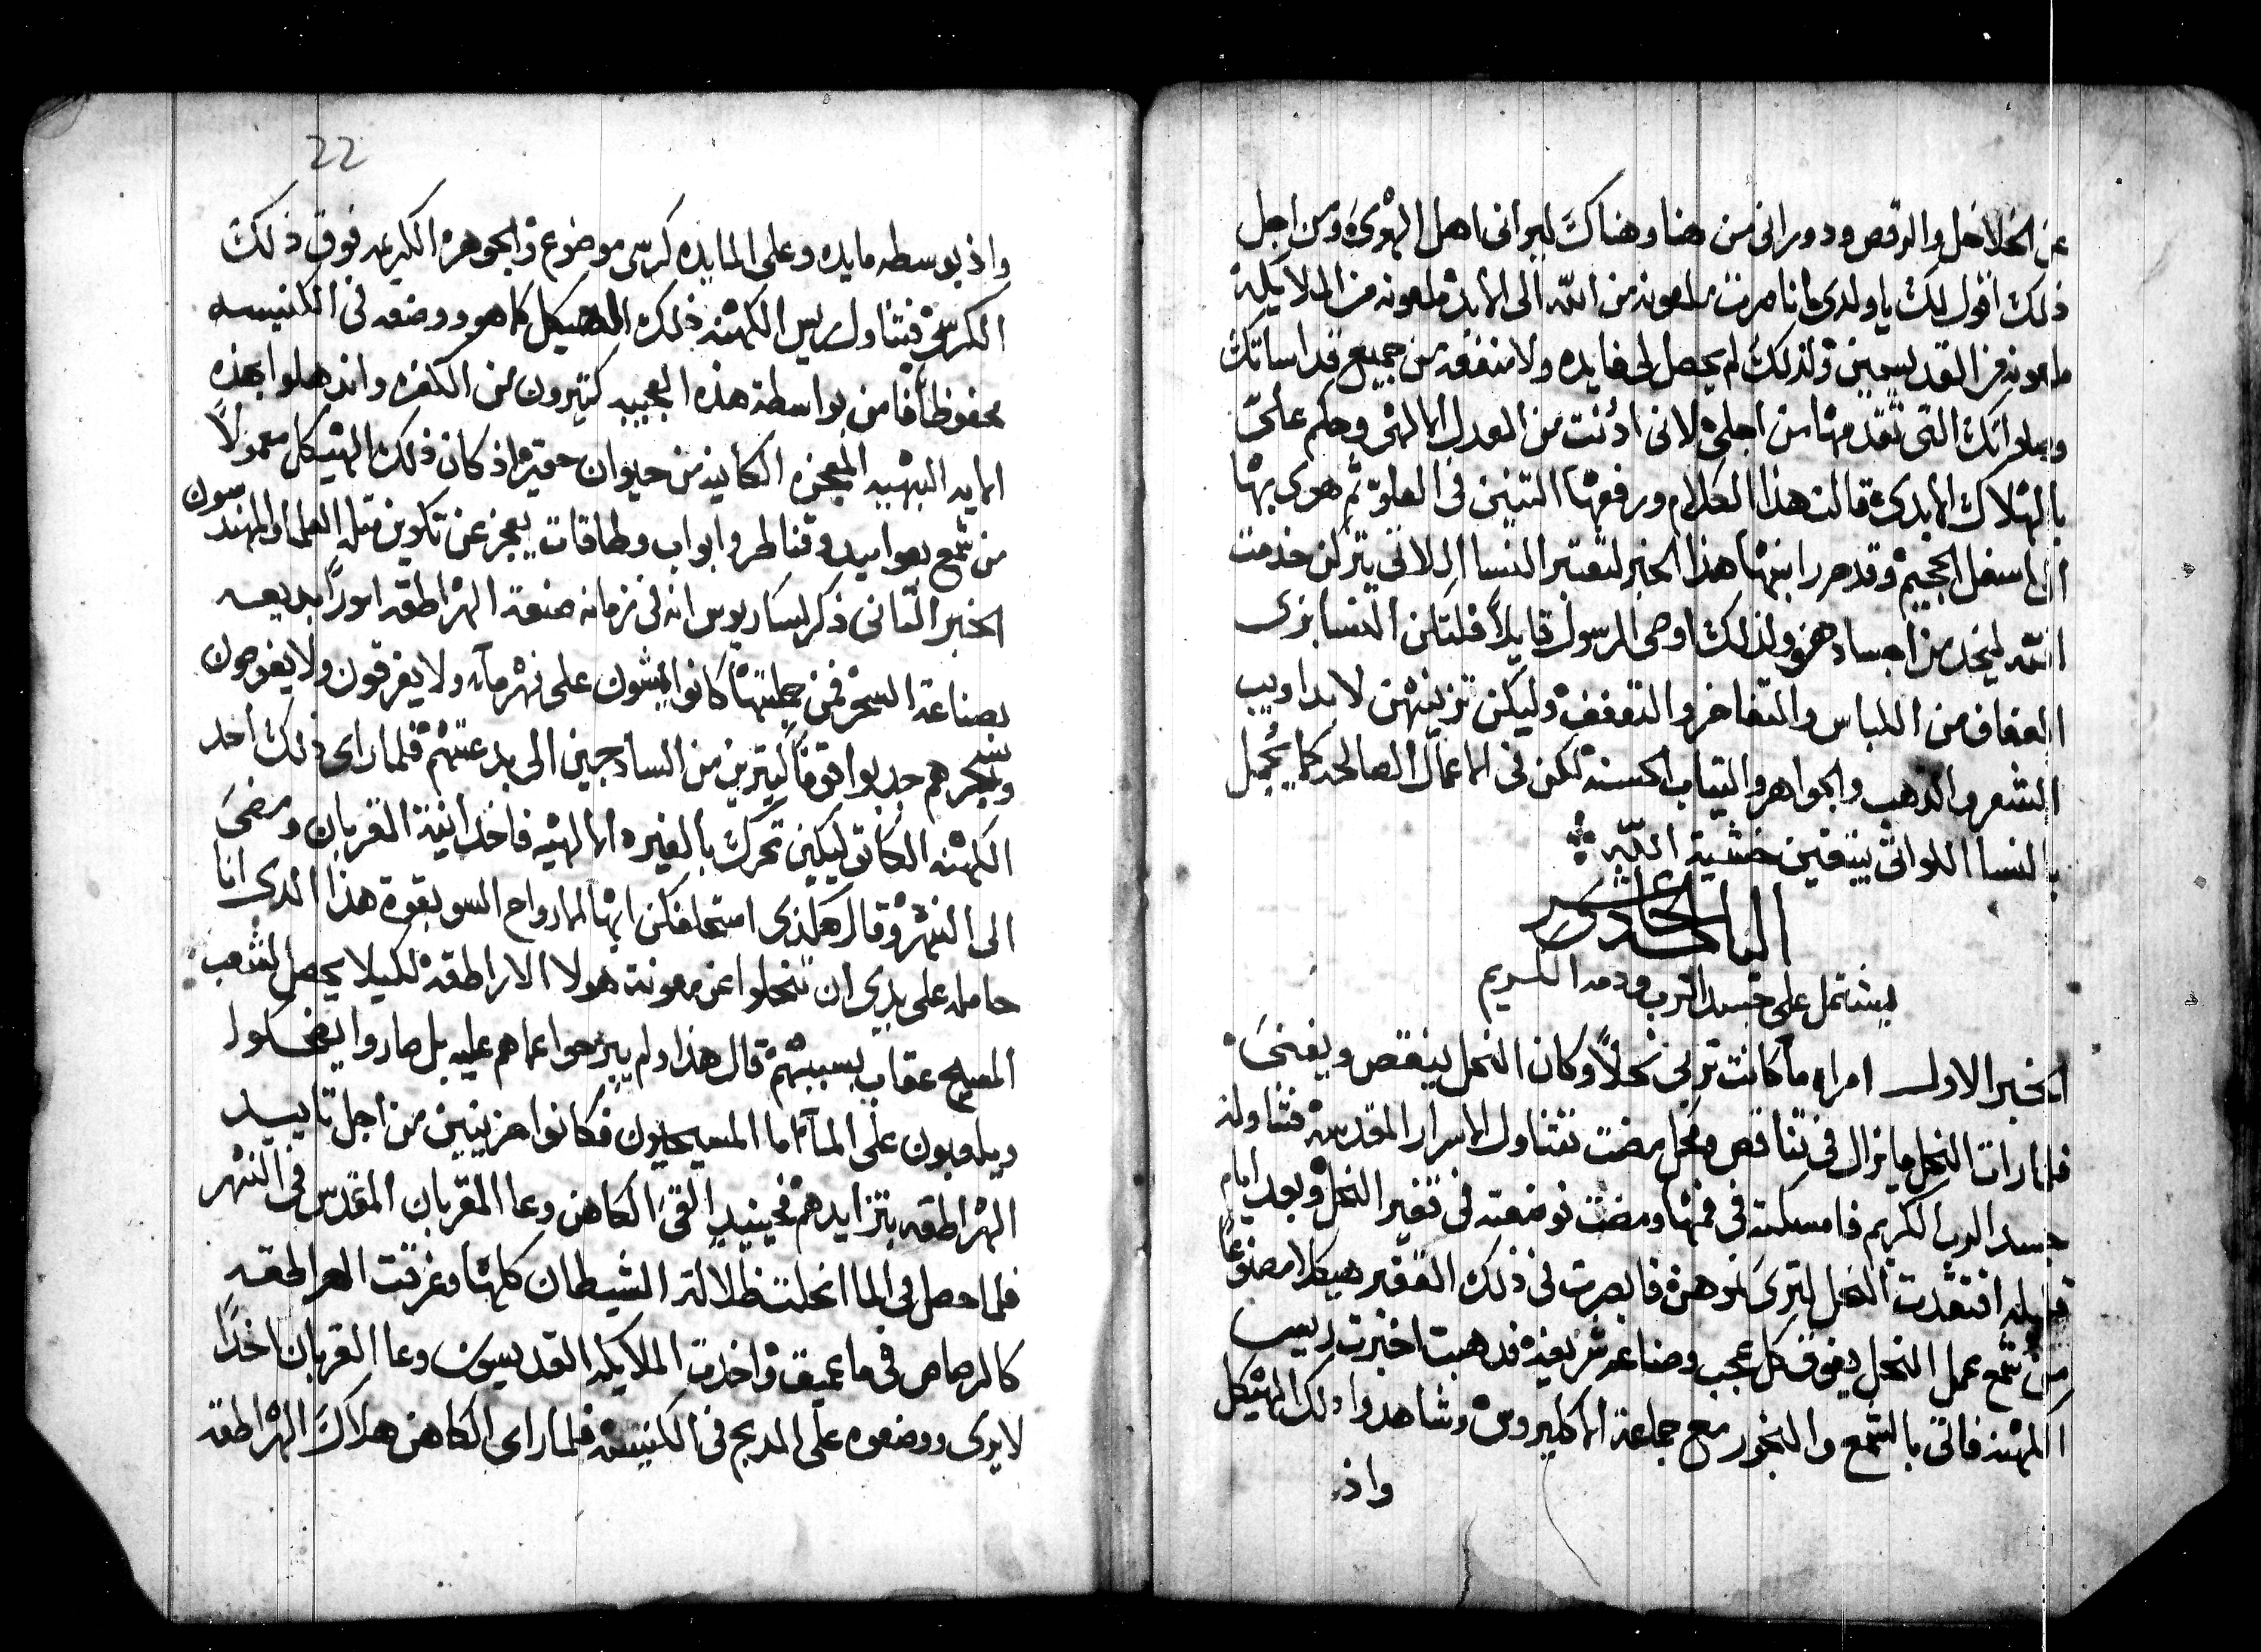 عن الخلاخل والرقص ودوراني من هنا وهناك ليراني اهل الهوى ومن اجل
ذلك اقول لك يا ولدي كانا صرت ملعونه من الله الى الابد ملعونه من الملايكة
ملعونه من القديسين ولذلك لم يحصل لي فايده ولا منفعه من جميع قداساتك
وصلواتك التي تقدمها من اجلي لاني ادنت من العدل الالهي وحكم علي
بالهلاك الابدي قالت هذا الكلام ورفعها التنين في العلو ثم هوى بها
الى اسفل الجحيم وقد حرر ابنها هذا الخبر لتعتبر النسا اللاتي يتركن خدمت
الله ليخدمن اجسادهن ولذلك اوصى الرسول قايلاً فلتكن النسا بزى
العفاف من اللباس والتفاخر والتعفف وليكن تزيينهن لا بداويب
الشعر والذهب والجواهر والتياب الحسنه لكن في الاعمال الصالحه كما يجمل
بالنسا اللواتي يتقين خشية الله
الباب الحادي عشر
يشتمل على جسد الرب ودمه الكريم
الخبر الاول امراه ما كانت تربى نحلاً وكان النحل ينقص ويفنى
فلما رات النحل ما يزال في تناقص ومحل مضت تتناول الاسرار المقدسه فتناولة
جسد الرب الكريم فامسكته في فمها ومضت نوضعته في نقير النحل وبعد ايام
قليله افتقدت النحل لترى نوهن فابصرت في ذلك النقير هيكلا مصنوعاً
من شمع عمل النحل يفوق كل عجب وصناعه شريفه فدهبت اخبرت رييس
الكهنه فاتى بالشمع والبخور مع جماعة الاكليروس وشاهدوا دلك الهيكل
واذ
22
واذ بوسطه مايده وعلى المايده كرسى موضوع والجوهره الكريمه فوق ذلك
الكرسي فتناول رييس الكهنه ذلك الهيكل كما هو ووضعه في الكنيسه
محفوظاً فامن بواسطة هذه العجيبه كتيرون من الكفره واندهلوا بهذه
الايه البهيه المعجزه الكاينه من حيوان حقير اذ كان ذلك الهيكل معمولاً
من شمع بعواميد وقناطر وابواب وطاقات يعجز عن تكوين متله العلما والمهندسون
الخبر التاني ذكر ليساريوس انه في زمانه صنعة الهراطقه امورًا بديعه
بصناعة السحر فمن جملتها كانوا يمشون على نهر مآء ولا يغرقون ولا يغوصون
وبسحرهم جدبوا قوماً كتيرين من السادجين الى بدعتهم فلما راى ذلك احد
الكهنه الكاتوليكين تحرك بالغيره الالهيه فاخد انية القربان ومضى
الى النهر وقال هكذى استحلفكن ايها الارواح السو بقوة هذا الدى انا
حامله على يدي ان تنحلوا عن معونة هولا الاراطقه لكيلا يحصل لشعب
المسيح عقاب بسببهم قال هذا ولم يبرحوا عما هم عليه بل صاروا يضحكوا
ويلعبون على المآ اما المسيحيون فكانوا حزينين من اجل تاييد
الهراطقه بتزايدهم فحينيد القى الكاهن وعا القربان المقدس في النهر
فلما حصل في الما انحلت ظلالة الشيطان كلها وغرقت الهراطقه
كالرصاص في ما عميق واخدت الملايكه القديسون وعا القربان اخدًا
لا يرى ووضعوه على المدبح في الكنيسه فلما راى الكاهن هلاك الهراطقه